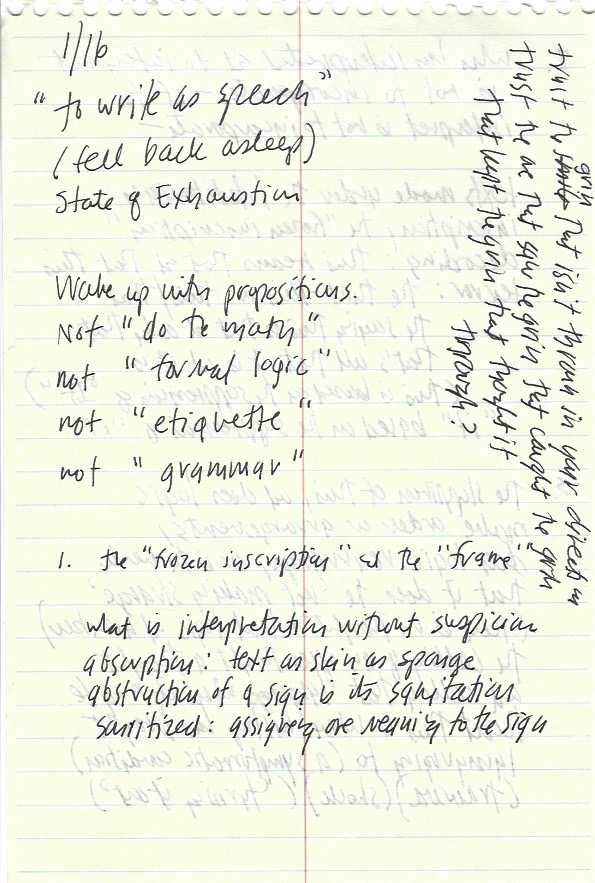 1/16
"to write as speech"
(fell back asleep)
State of Exhaustion
Wake up with propositions.
Not "do the math"
not "formal logic"
not "etiquette"
not "grammar"
1. the "frozen inscription" and the "frame"
what is interpretation without suspicion
absorption: text as skin as sponge
abstraction of a sign is its sanitation
sanitized: assigning one meaning to the sign
grin
trust the that isn't thrown in your direction
trust the one that saw the grin that caught the grin
that kept the grin that thought it
through?